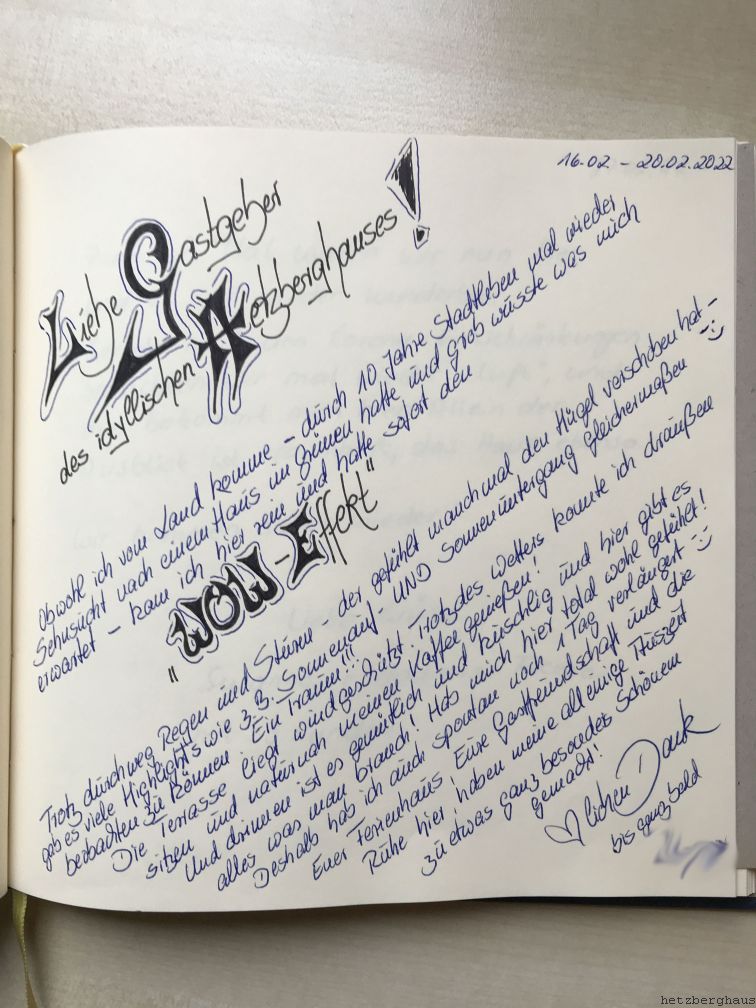 16.02 - 20.02.2022
Liebe Gastgeber
des idyllischen Hetzberghauses!
Obwohl ich vom Land komme - durch 10 Jahre Stadtleben mal wieder
Sehnsucht nach einem Haus im Grünen hatte und grob wusste was mich
erwartet - kam ich hier rein und hatte sofort den
"WOW-Effekt"
Trotz durchweg Regen und Sturm - der gefühlt manchmal den Hügel verschoben hat -
gab es viele Highlights wie z.B. Sonnenauf- UND Sonnenuntergang gleichermaßen :-)
beobachten zu können. Ein Traum!!! Trotz des Wetters konnte ich draußen
Die Terrasse liegt windgeschützt.
sitzen und naturnah meinen Kaffee genießen!
Und drinnen ist es gemütlich und kuschlig und hier gibt es
alles was man brauch! Hab mich hier total wohl gefühlt!
Deshalb hab ich auch spontan noch 1 Tag verlängert :-)
Euer Ferienhaus, Eure Gastfreundschaft und die
Ruhe hier haben meine alleinige Auszeit
zu etwas ganz besonders Schönem
gemacht!
♡lichen Dank
bis ganz bald
hetzberghaus